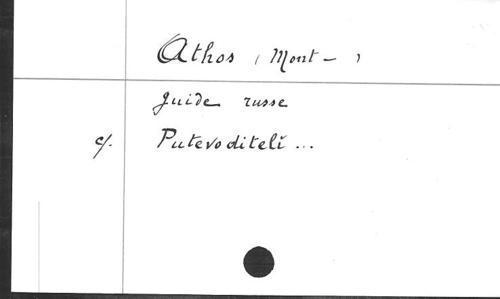 Athos (Mont- )
Guide russe
cf. Putevoditelĭ ...